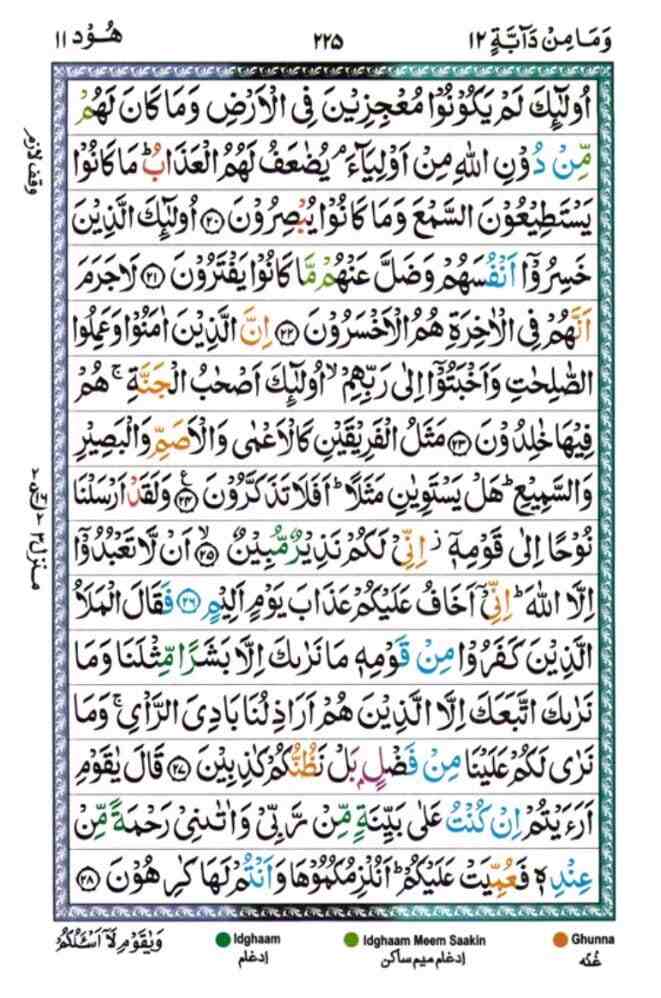 وَمَا مِنْ دَآبَّةٍ ١٢
٢٢٥
هُوْد ١١
اُولٰٓئِكَ لَمْ يَكُوْنُوْا مُعْجِزِيْنَ فِى الْاَرْضِ وَمَا كَانَ لَهُمْ
مِّنْ دُوْنِ اللّٰهِ مِنْ اَوْلِيَآءَ ۘ يُضٰعَفُ لَهُمُ الْعَذَابُ ؕ مَا كَانُوْا
يَسْتَطِيْعُوْنَ السَّمْعَ وَمَا كَانُوْا يُبْصِرُوْنَ ﴿۲۰﴾ اُولٰٓئِكَ الَّذِيْنَ
خَسِرُوْۤا اَنْفُسَهُمْ وَضَلَّ عَنْهُمْ مَّا كَانُوْا يَفْتَرُوْنَ ﴿۲۱﴾ لَا جَرَمَ
اَنَّهُمْ فِى الْاٰخِرَةِ هُمُ الْاَخْسَرُوْنَ ﴿۲۲﴾ اِنَّ الَّذِيْنَ اٰمَنُوْا وَعَمِلُوا
الصّٰلِحٰتِ وَاَخْبَتُوْۤا اِلٰى رَبِّهِمْ ۙ اُولٰٓئِكَ اَصْحٰبُ الْجَنَّةِ ۚ هُمْ
فِيْهَا خٰلِدُوْنَ ﴿۲۳﴾ مَثَلُ الْفَرِيْقَيْنِ كَالْاَعْمٰى وَالْاَصَمِّ وَالْبَصِيْرِ
وَالسَّمِيْعِ ؕ هَلْ يَسْتَوِيٰنِ مَثَلًا ؕ اَفَلَا تَذَكَّرُوْنَ ﴿۲۴﴾ وَلَقَدْ اَرْسَلْنَا
نُوْحًا اِلٰى قَوْمِهٖۤ ز اِنِّىْ لَكُمْ نَذِيْرٌ مُّبِيْنٌ ﴿۲۵﴾ اَنْ لَّا تَعْبُدُوْۤا
اِلَّا اللّٰهَ ؕ اِنِّىْۤ اَخَافُ عَلَيْكُمْ عَذَابَ يَوْمٍ اَلِيْمٍ ﴿۲۶﴾ فَقَالَ الْمَلَاُ
الَّذِيْنَ كَفَرُوْا مِنْ قَوْمِهٖ مَا نَرٰىكَ اِلَّا بَشَرًا مِّثْلَنَا وَمَا
نَرٰىكَ اتَّبَعَكَ اِلَّا الَّذِيْنَ هُمْ اَرَاذِلُنَا بَادِىَ الرَّاْىِ ۚ وَمَا
نَرٰى لَكُمْ عَلَيْنَا مِنْ فَضْلٍۭ بَلْ نَظُنُّكُمْ كٰذِبِيْنَ ﴿۲۷﴾ قَالَ يٰقَوْمِ
اَرَءَيْتُمْ اِنْ كُنْتُ عَلٰى بَيِّنَةٍ مِّنْ رَّبِّىْ وَاٰتٰىنِىْ رَحْمَةً مِّنْ
عِنْدِهٖ فَعُمِّيَتْ عَلَيْكُمْ ؕ اَنُلْزِمُكُمُوْهَا وَاَنْتُمْ لَهَا كٰرِهُوْنَ ﴿۲۸﴾
وقف لازم
منزل ۳
وَيٰقَوْمِ لَاۤ اَسْـَٔلُكُمْ
Idghaam
ادغام
Idghaam Meem Saakin
ادغام میم ساکن
Ghunna
غُنّه